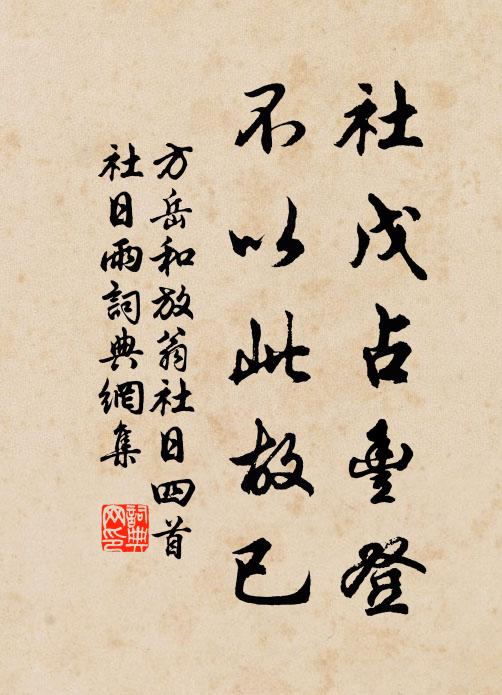 社戊占豐登
不以此故已
方岳和放翁社日四首
社日雨詞典網集
詞典网印